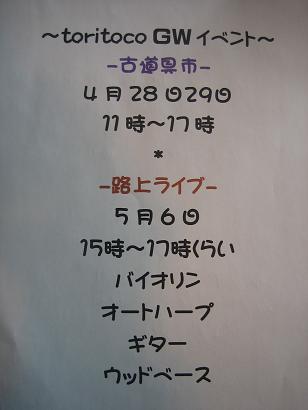 ～toritoco GW イベント～
-古道具市-
4月28日29日
11時～17時
*
-路上ライブ-
5月6日
15時～17時くらい
バイオリン
オートハープ
ギター
ウッドベース